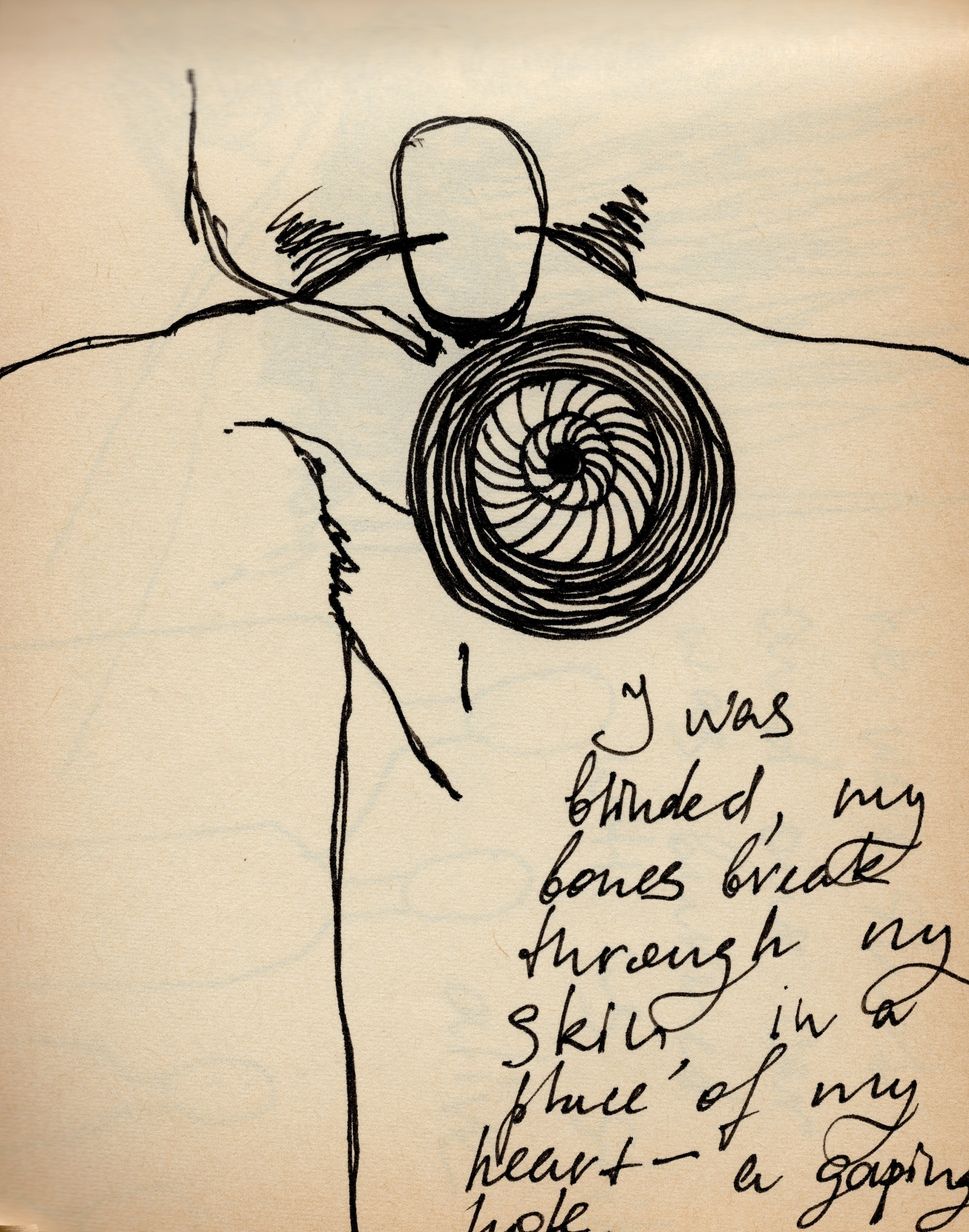 I was
blinded, my
bones break
through my
skin, in a
place of my
heart – a gaping
hole.